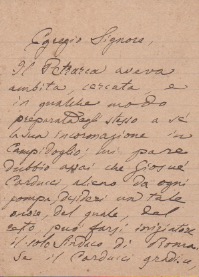 Egregio Signore,
Il Petrarca aveva
ambita, cercata e
in qualche modo
preparata egli stesso a sé
la sua incoronazione in
Campidoglio: mi pare
dubbio assai che Giosuè
Carducci, alieno da ogni
pompa, desideri un tale
onore, del quale, del
resto, può farsi iniziatore
il solo Sindaco di Roma.
Se il Carducci gradisce